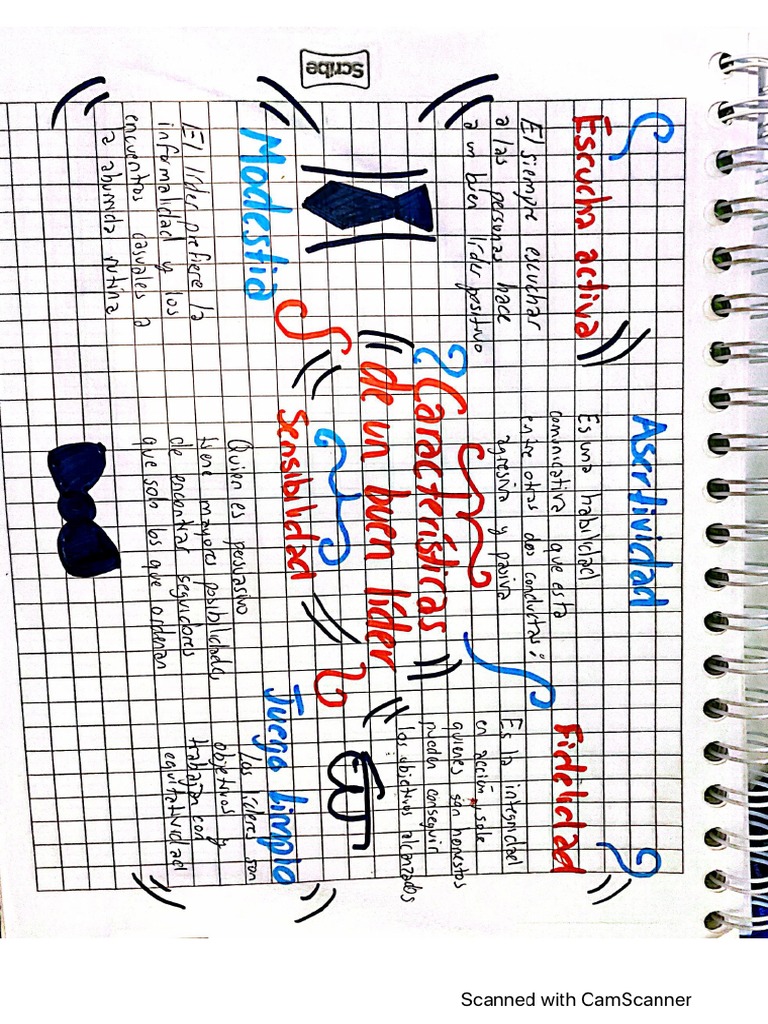 Escucha activa
El siempre escuchar
a las personas hace
a un buen líder positivo
Asertividad
Es una habilidad
comunicativa que esta
entre otras dos conductas:
agresiva y pasiva
Fidelidad
Es la integridad
en acción y solo
quienes son honestos
pueden conseguir
los objetivos alcanzados
Características
de un buen líder
Modestia
El líder prefiere la
informalidad y los
encuentros casuales a
a aburrida rutina
Sensibilidad
Quien es persuasivo
tiene mayores posibilidades
de encontrar seguidores
que solo los que ordenan
Juego limpio
Los líderes son
objetivos y
trabajan con
equitatividad
Scribe
Scanned with CamScanner